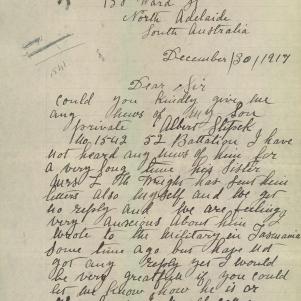 Ward St
North Adelaide
South Australia
December/30/1917
1541
Dear Sir
could you kindly give me
any News of My Son
Private Albert
No 1542 52 Battalion I have
not heard any news of him for
a very long time his Sister
Mrs L M Wright has sent him
letters also myself and we get
no reply and we are feeling
very Anxious about him I
wrote to the Military in Tasmania
some time ago but have not
got any reply yet I would
be very greatfull if you could
let me know how he is or